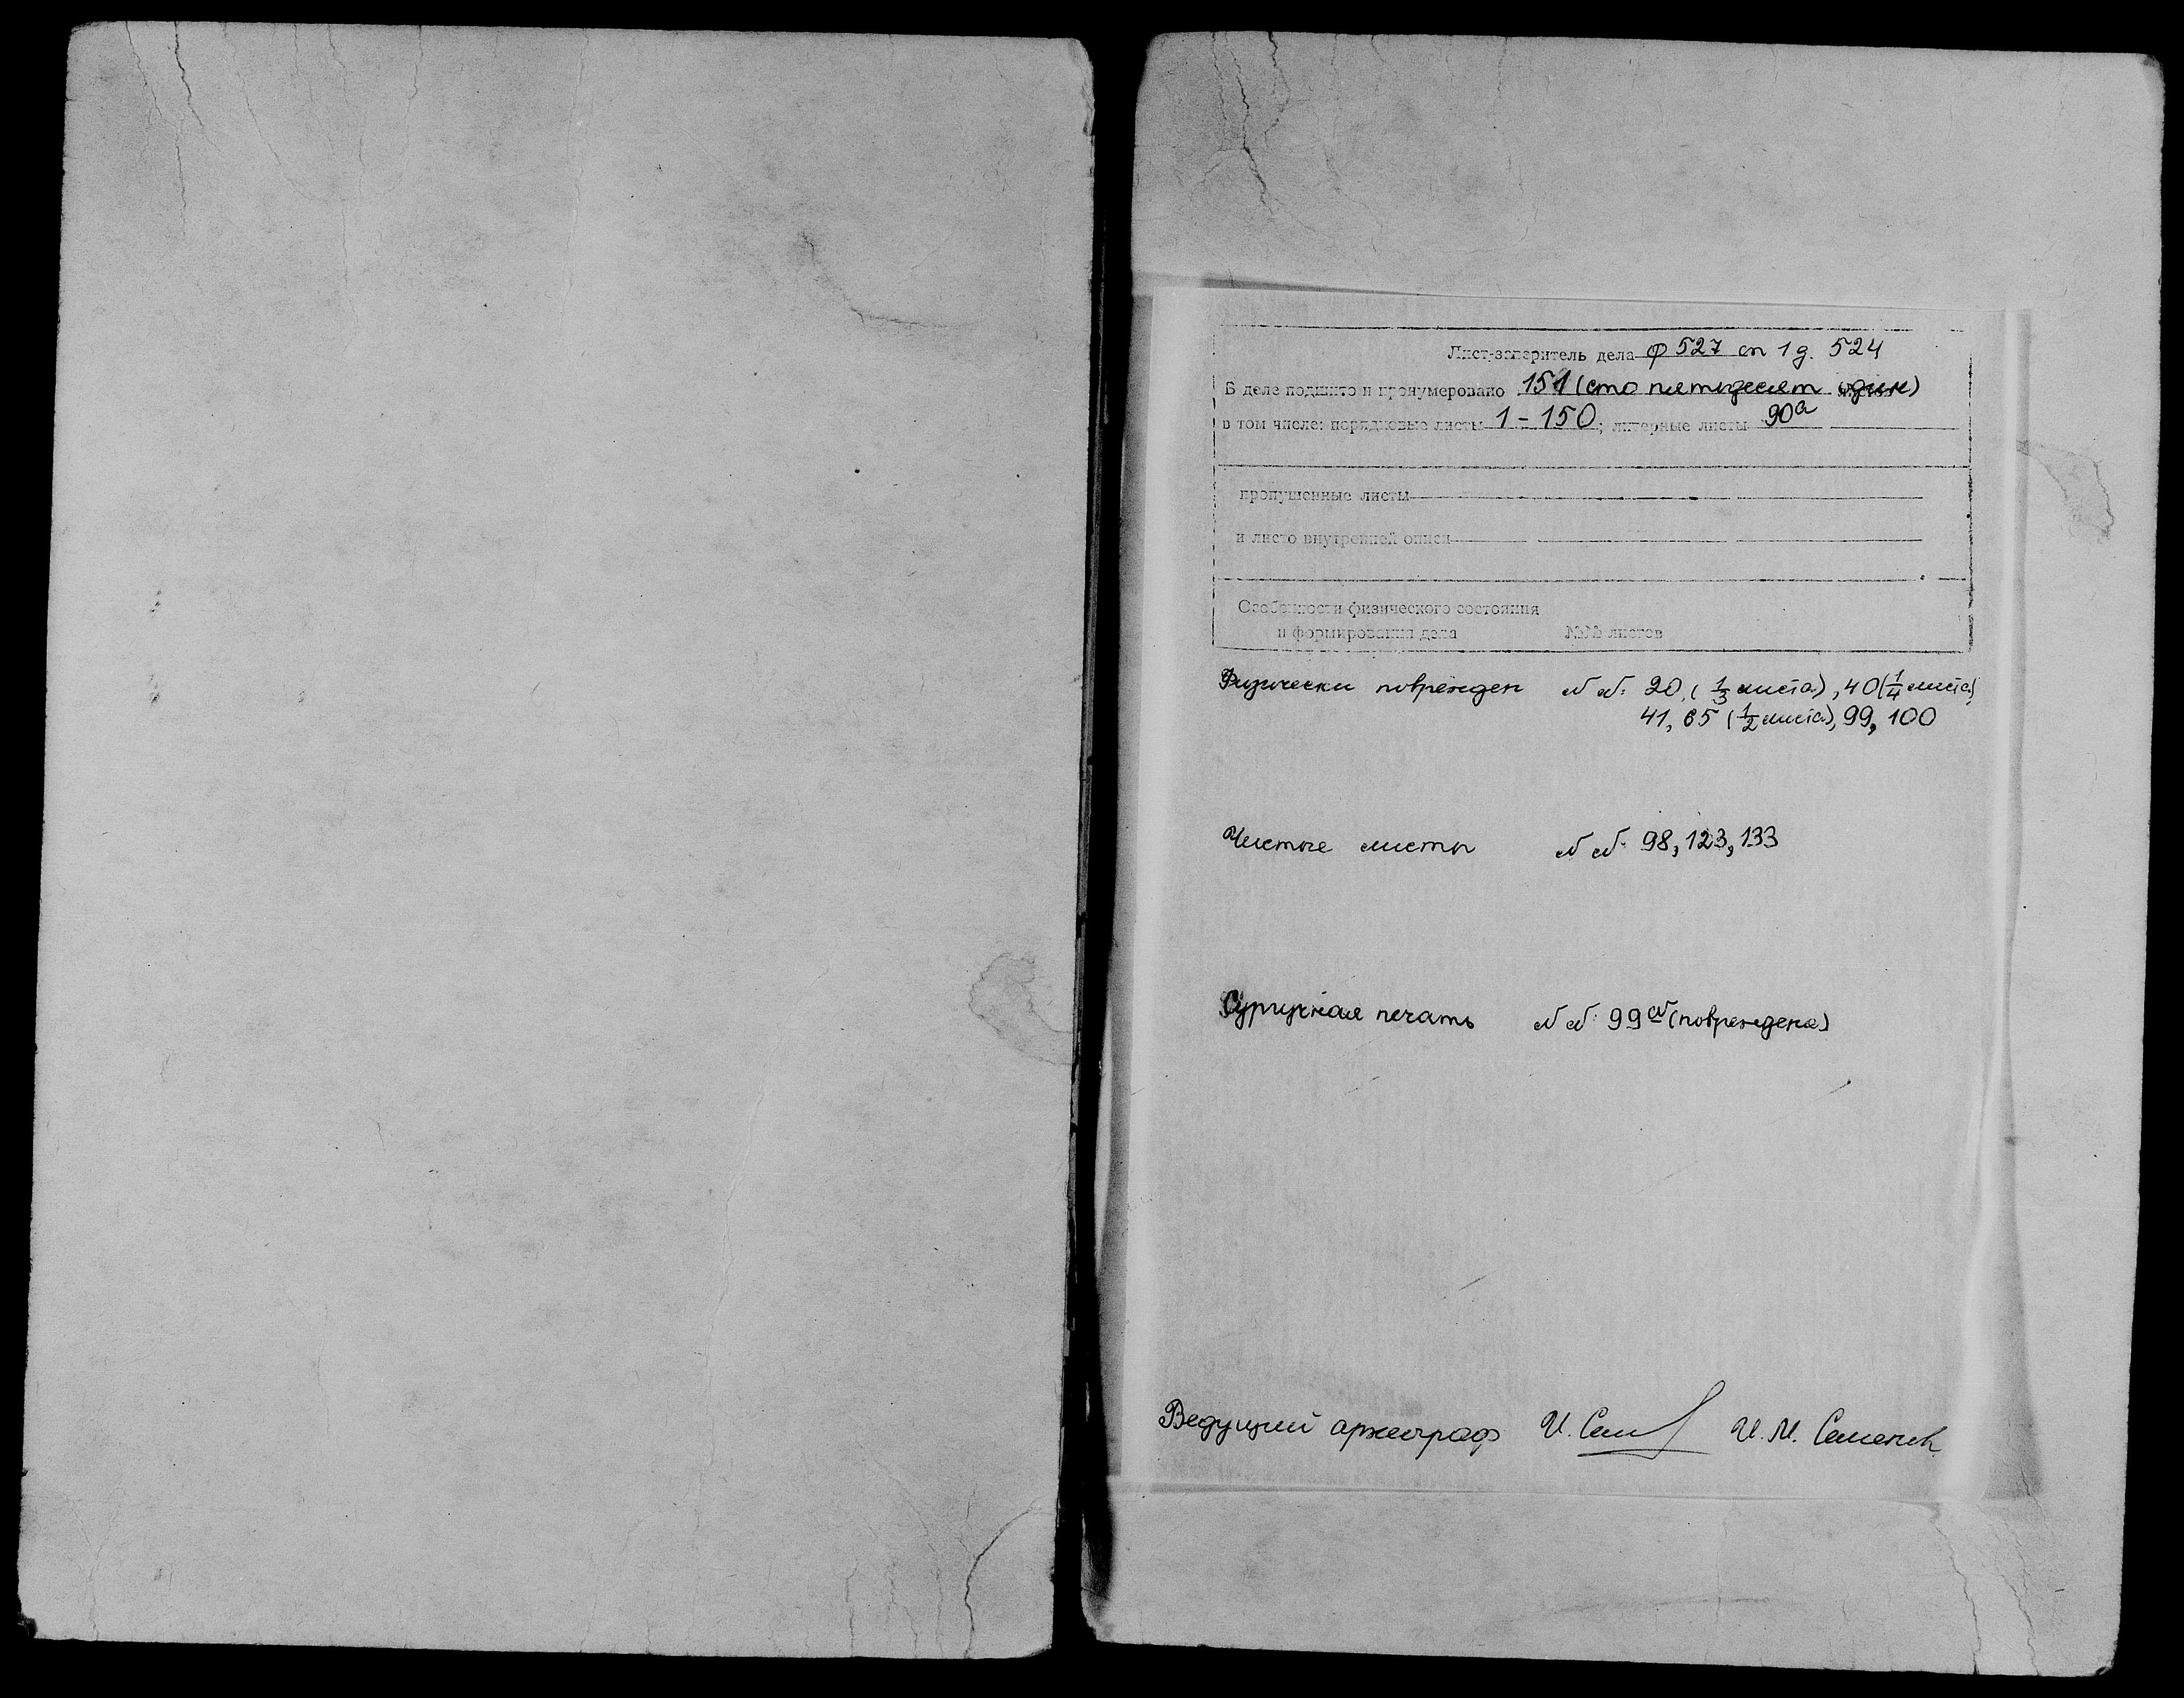 Лист-заверитель дела ф 527 оп 1 д. 524
В деле подшито и пронумеровано 151 (сто пятьдесят один)
в том числе: порядковые листы 1 - 150; литерные листы 90а
пропущенные листы
и листо внутренней описи
Особенности физического состояния
и формирования дела №№ листов
Физически поврежден №№: 20, (1/3 листа), 40 (1/4 листа)
41, 65 (1/2 листа), 99, 100
Чистые листы №№ 98, 123, 133
Сургучная печать №№: 99об (повреждена)
Ведущий археограф И. Сем И. М. Семенов